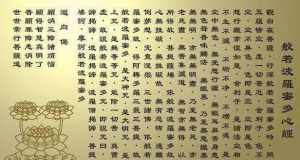 般若波羅蜜多心經
觀自在菩薩。行深般若波羅蜜多時。照見五蘊皆
空。度一切苦厄。舍利子。色不異空。空不異色。色即是
空。空即是色。受想行識。亦復如是。舍利子。是諸法空相。
不生不滅。不垢不淨。不增不減。是故空中。無色。無受想行識。
無眼耳鼻舌身意。
無色聲香味觸法。無眼界。乃至無意識界。
無無明。亦無無明盡。乃至無老死。亦無老死盡。
無苦集滅道。無智亦無得。以無
所得故。菩提薩埵。依般若波羅蜜多故。
心無罣礙。無罣礙故。無有恐怖。遠離顛
倒夢想。究竟涅槃。三世諸佛。依般若波羅蜜多故。
得阿耨多羅三藐三菩提。故知般若波羅蜜
多。是大神咒。是大明咒。是無上咒。是無等等咒。能除一切苦。真實不
虛。故說般若波羅蜜多咒。即說咒曰。
揭諦揭諦。波羅揭諦。波羅僧揭諦。菩提薩婆訶。
般若波羅蜜多
迴向偈
願消三障諸煩惱
願得智慧真明了
普願罪障悉消除
世世常行菩薩道